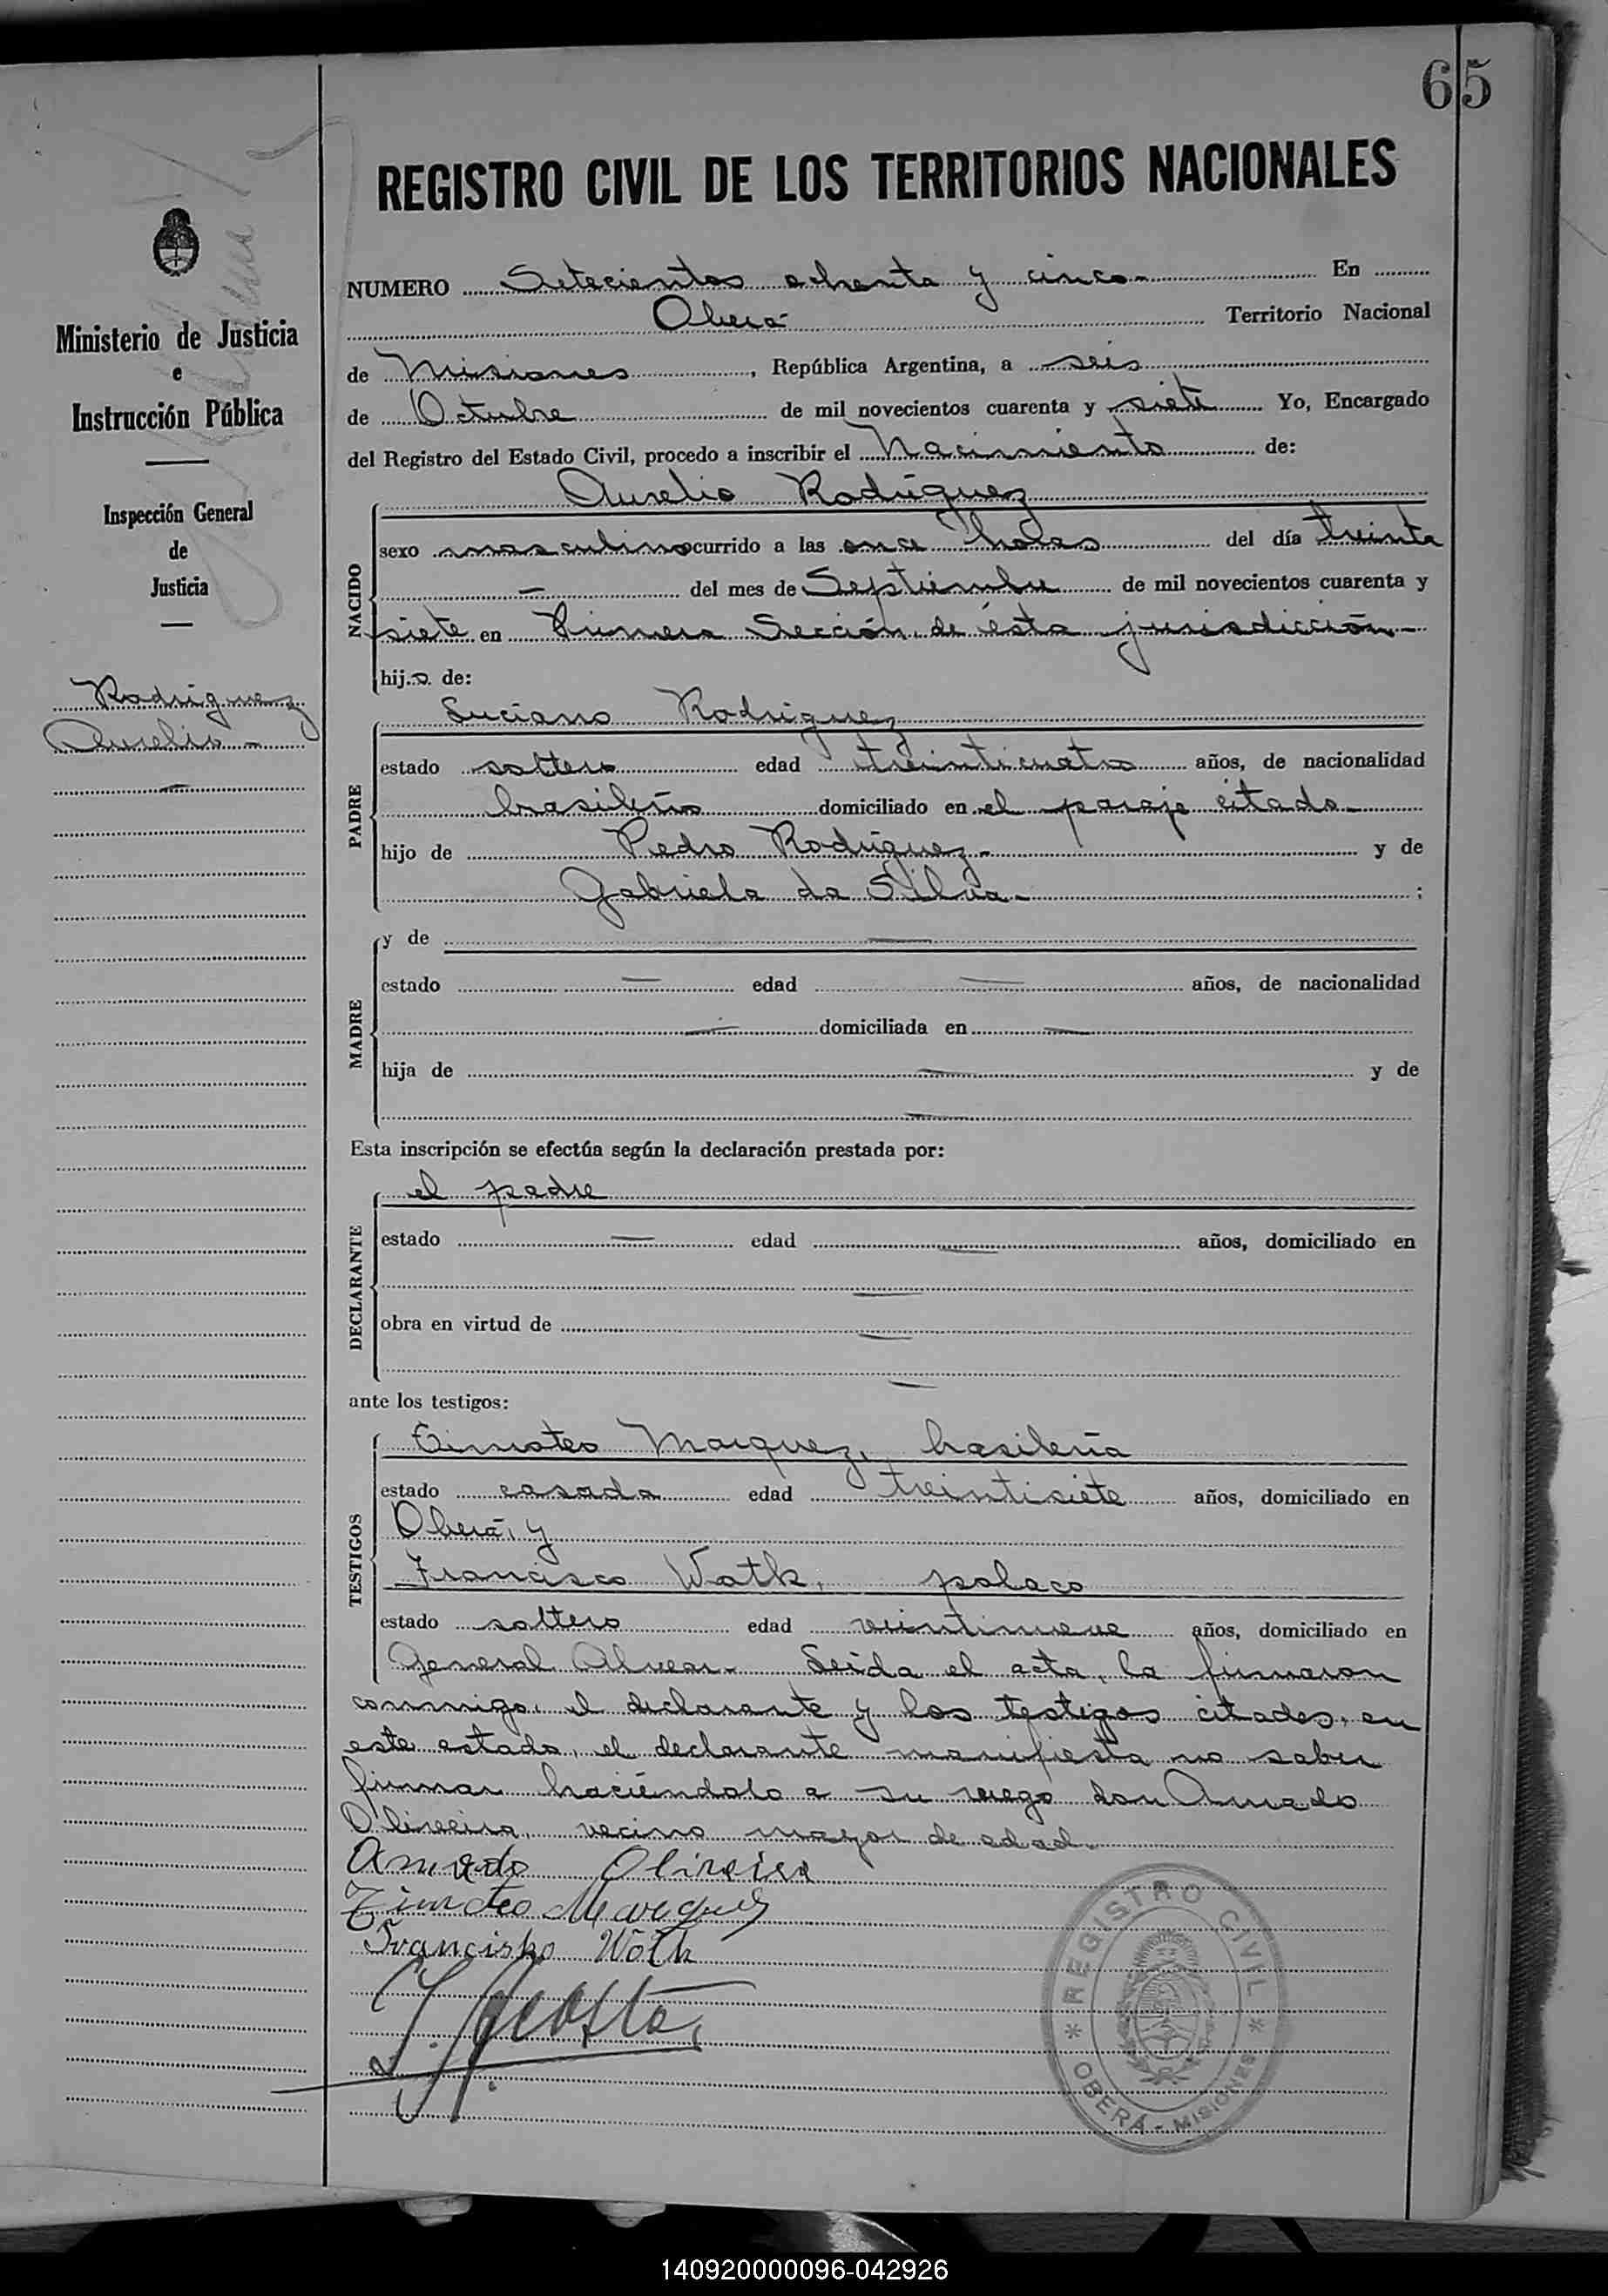 65
REGISTRO CIVIL DE LOS TERRITORIOS NACIONALES
Ministerio de Justicia
e
Instrucción Pública
Inspección General
de
Justicia
Rodriguez
Aurelio -
NUMERO Setecientos ochenta y cinco- En
Oberá Territorio Nacional
de Misiones, República Argentina, a seis
de Octubre de mil novecientos cuarenta y siete Yo, Encargado
del Registro del Estado Civil, procedo a inscribir el Nacimiento de:
NACIDO
Aurelio Rodríguez
sexo masculino ocurrido a las once horas del día treinta
- del mes de Septiembre de mil novecientos cuarenta y
siete en Primera Sección de ésta jurisdicción-
hijo de:
PADRE
Luciano Rodriguez
estado soltero edad treinticuatro años, de nacionalidad
brasileño domiciliado en el paraje citado-
hijo de Pedro Rodríguez- y de
Gabriela da Silva- ;
MADRE
y de —
estado — edad — años, de nacionalidad
— domiciliada en —
hija de — y de
—
Esta inscripción se efectúa según la declaración prestada por:
DECLARANTE
el padre
estado — edad — años, domiciliado en
—
obra en virtud de —
—
ante los testigos:
TESTIGOS
Timoteo Marquez, brasileña
estado casada edad treintisiete años, domiciliado en
Oberá, y
Francisco Woth, polaco
estado soltero edad veintinueve años, domiciliado en
General Alvear- Leída el acta, la firmaron
conmigo, el declarante y los testigos citados, en
este estado, el declarante manifiesta no saber
firmar haciéndolo a su ruego don Amado
Oliveira, vecino mayor de edad.
Amado Oliveira
Timoteo Marquez
Francisko Wóth
J. Acosta
REGISTRO CIVIL
* OBERÁ - MISIONES *
140920000096-042926